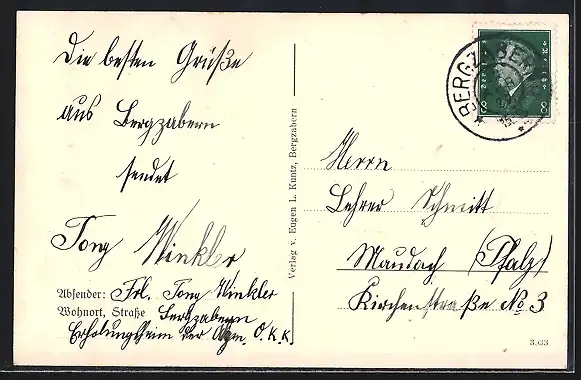 Die besten Grüße
aus Bergzabern
sendet
Tony Winkler
Absender: Frl. Tony Winkler
Wohnort, Straße Bergzabern
Erholungsheim der Allgm. O.K.K.
Verlag v. Eugen L. Kuntz, Bergzabern
BERGZABERN
8 8
Herrn
Lehrer Schmitt
Maudach (Pfalz)
Kirchenstraße No 3